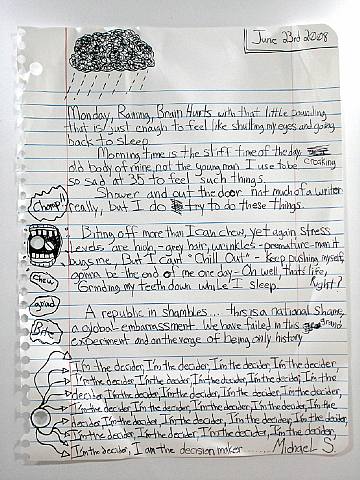 June 23rd 2008
Monday, Raining, Brain Hurts with that little pounding
that is just enough to feel like shutting my eyes and going
back to sleep.
Morning time is the stiff time of the day.
old body of mine, not the young man I use to be creaking
so sad at 35 to feel such things.
Shower and out the door not much of a writer
really, but I do try to do these things.
Chomp!
Biting off more than I can chew, yet again stress
levels are high, -grey hair, wrinkles - premature-man it
bugs me, But I can't "Chill Out" - Keep pushing myself,
gonna be the end of me one day - Oh well, thats life,
Grinding my teeth down while I sleep. Right?
Chew
grind
Bite
A republic in shambles... this is a national shame,
a global embarrassment. We have failed in this grand
experiment and on the verge of being only history
I'm the decider, I'm the decider, I'm the decider, I'm the decider,
I'm the decider, I'm the decider, I'm the decider, I'm the decider, I'm the
decider, I'm the decider, I'm the decider, I'm the decider, I'm the decider,
I'm the decider, I'm the decider, I'm the decider, I'm the decider, I'm the
decider, I'm the decider, I'm the decider, I'm the decider, I'm the decider,
I'm the decider, I'm the decider, I'm the decider, I'm the decider,
I'm the decider, I am the decision maker ........ Michael S.